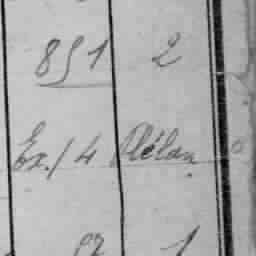 851 2
Ex. / 4 Plélan
1